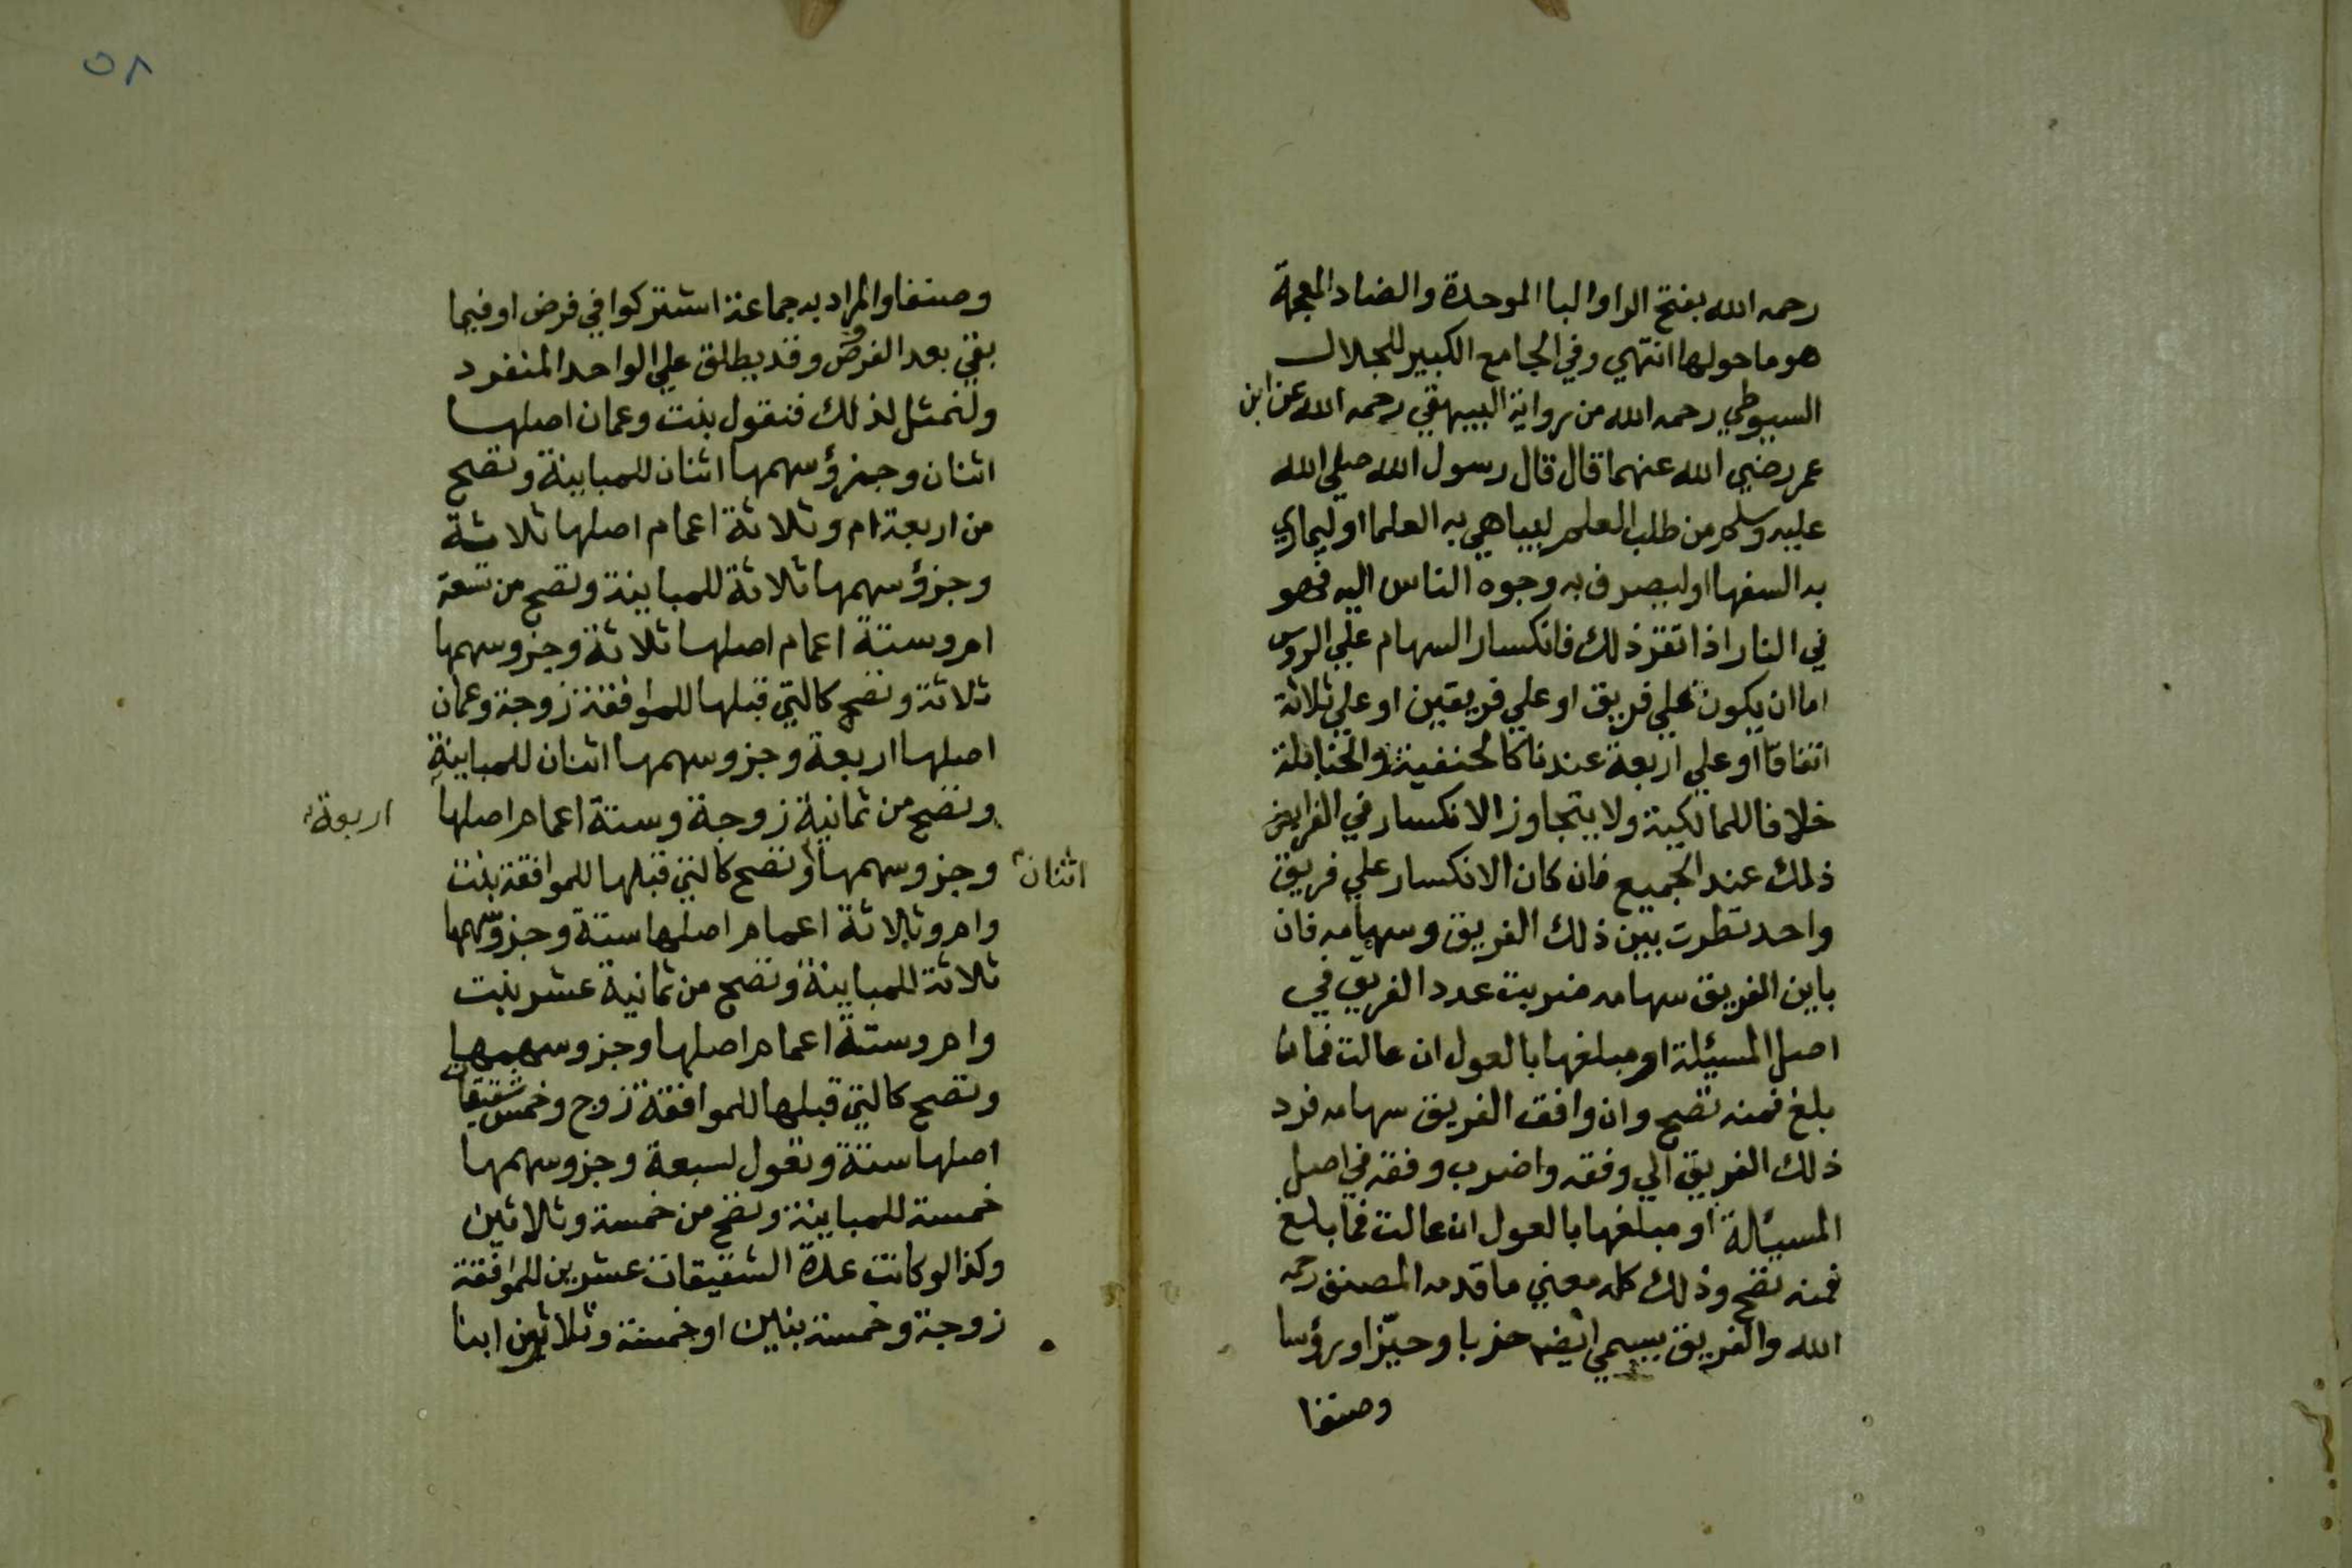 رحمه الله بفتح الرا والبا الموحدة والضاد المعجمة
هو ما حولها انتهي وفي الجامع الكبير للجلال
السيوطي رحمه الله من رواية البيهقي رحمه الله عن ابن
عمر رضي الله عنهما قال قال رسول الله صلي الله
عليه وسلم من طلب العلم ليباهي به العلما او ليماري
به السفها او ليصرف به وجوه الناس اليه فهو
في النار اذا تقرر ذلك فانكسار السهام علي الروس
اما ان يكون علي فريق او علي فريقين او علي ثلاثة
اتفاقا او علي اربعة عندنا كالحنفية والحنابلة
خلافا للمالكية ولا يتجاوز الانكسار في الفرايض
ذلك عند الجميع فان كان الانكسار علي فريق
واحد نظرت بين ذلك الفريق وسهامه فان
باين الفريق سهامه ضربت عدد الفريق في
اصل المسيئلة او مبلغها بالعول ان عالت فما
بلغ فمنه تصح وان وافق الفريق سهامه فرد
ذلك الفريق الي وفقه واضرب وفقه في اصل
المسيئالة او مبلغها بالعول ان عالت فما بلغ
فمنه تصح وذلك كله معني ما قدمه المصنف رحمه
الله والفريق يسمي ايضا حزبا وحيّزا ورؤسا
وصنفا
٥٨
وصنفا والمراد به جماعة اشتركوا في فرض او فيما
بقي بعد الفرض وقد يطلق علي الواحد المنفرد
ولنمثل لذلك فنقول بنت وعمان اصلها
اثنان وجزؤ سهمها اثنان للمباينة وتصح
من اربعة ام وثلاثة اعمام اصلها ثلاثة
وجزؤ سهمها ثلاثة للمباينة وتصح من تسعة
ام وستة اعمام اصلها ثلاثة وجزو سهمها
ثلاثة وتصح كالتي قبلها للموافقة زوجة وعمان
اصلها اربعة وجزو سهمها اثنان للمباينة
وتصح من ثمانية زوجة وستة اعمام اصلها
اربعة
وجزو سهمها وتصح كالتي قبلها للموافقة بنت
اثنان
وام وثلاثة اعمام اصلها ستة وجزو سهمها
ثلاثة للمباينة وتصح من ثمانية عشر بنت
وام وستة اعمام اصلها وجزو سهمها
وتصح كالتي قبلها للموافقة زوج وخمس شقيقات
اصلها ستة وتعول لسبعة وجزو سهمها
خمسة للمباينة وتصح من خمسة وثلاثين
وكذا لو كانت عدة الشقيقات عشرين للموافقة
زوجة وخمسة بنين او خمسة وثلاثين ابنا